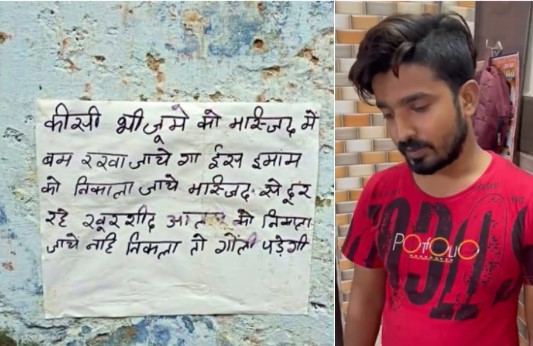 कीसी भी जूमे को मास्जिद में
बम रखा जाये गा ईस इमाम
को निकाला जाये मास्जिद से दूर
रहे खूरशीद आलम को निकाला
जाये नहि निकला तो गोली पड़ेगी
POTFOLIO